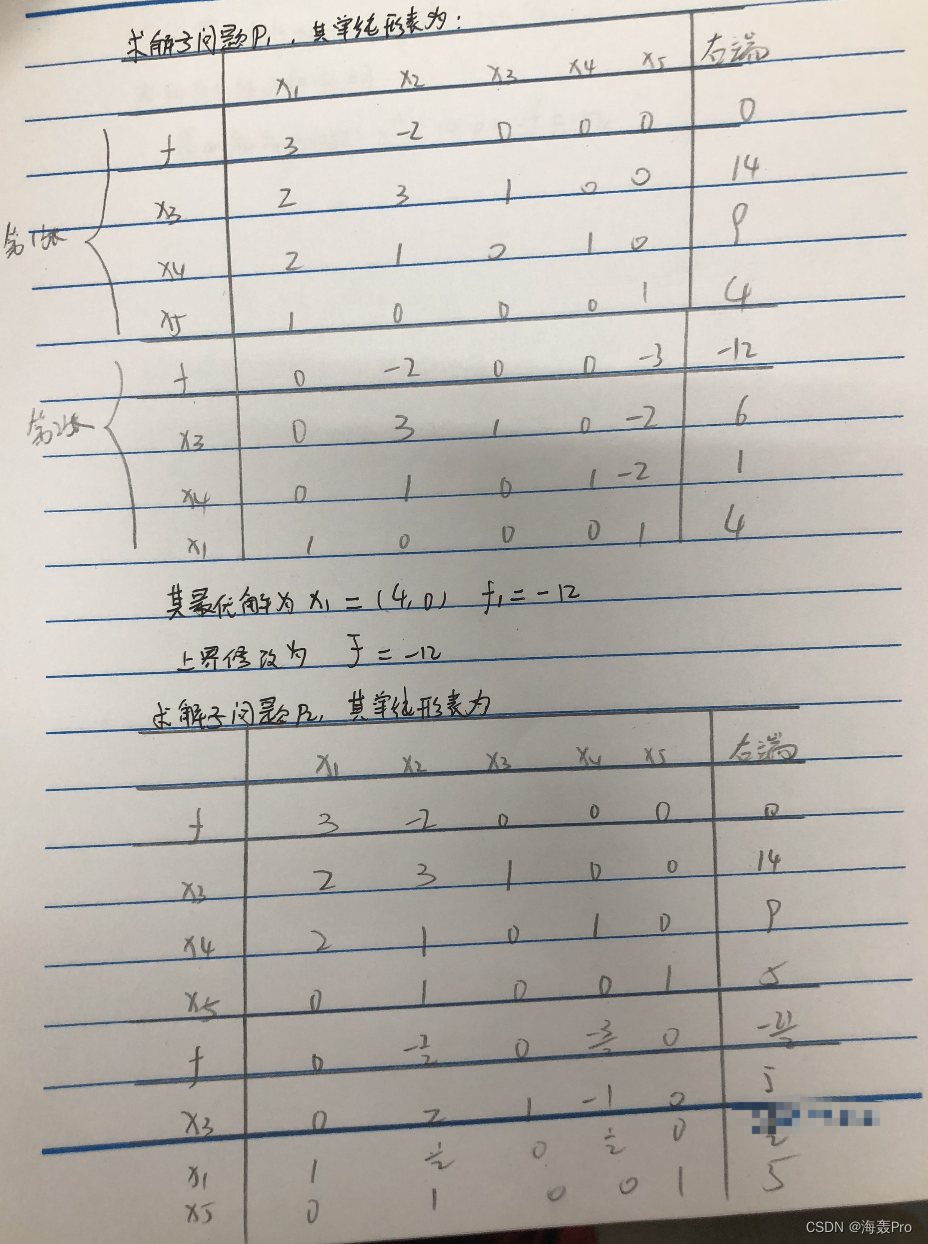 求解子问题P1,其单纯形表为:
x1 x2 x3 x4 x5 右端
f 3 -2 0 0 0 0
x3 2 3 1 0 0 14
第1张
x4 2 1 0 1 0 9
x5 1 0 0 0 1 4
f 0 -2 0 0 -3 -12
第2张
x3 0 3 1 0 -2 6
x4 0 1 0 1 -2 1
x1 1 0 0 0 1 4
其最优解为 x1 = (4,0) f1 = -12
上界修改为 f̄ = -12
求解子问题P2,其单纯形表为
x1 x2 x3 x4 x5 右端
f 3 -2 0 0 0 0
x3 2 3 1 0 0 14
x4 2 1 0 1 0 9
x5 0 1 0 0 1 5
f 0 0 -3/2 0
x3 0 2 1 -1 0 5
x1 1 1/2 0 1/2 0
x5 0 1 0 0 1 5
CSDN @海轰Pro